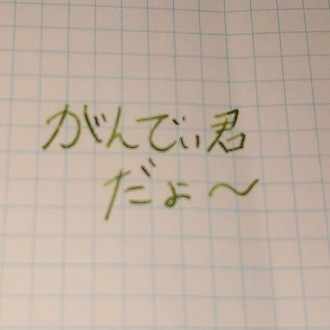 がんでぃ君
だよ〜